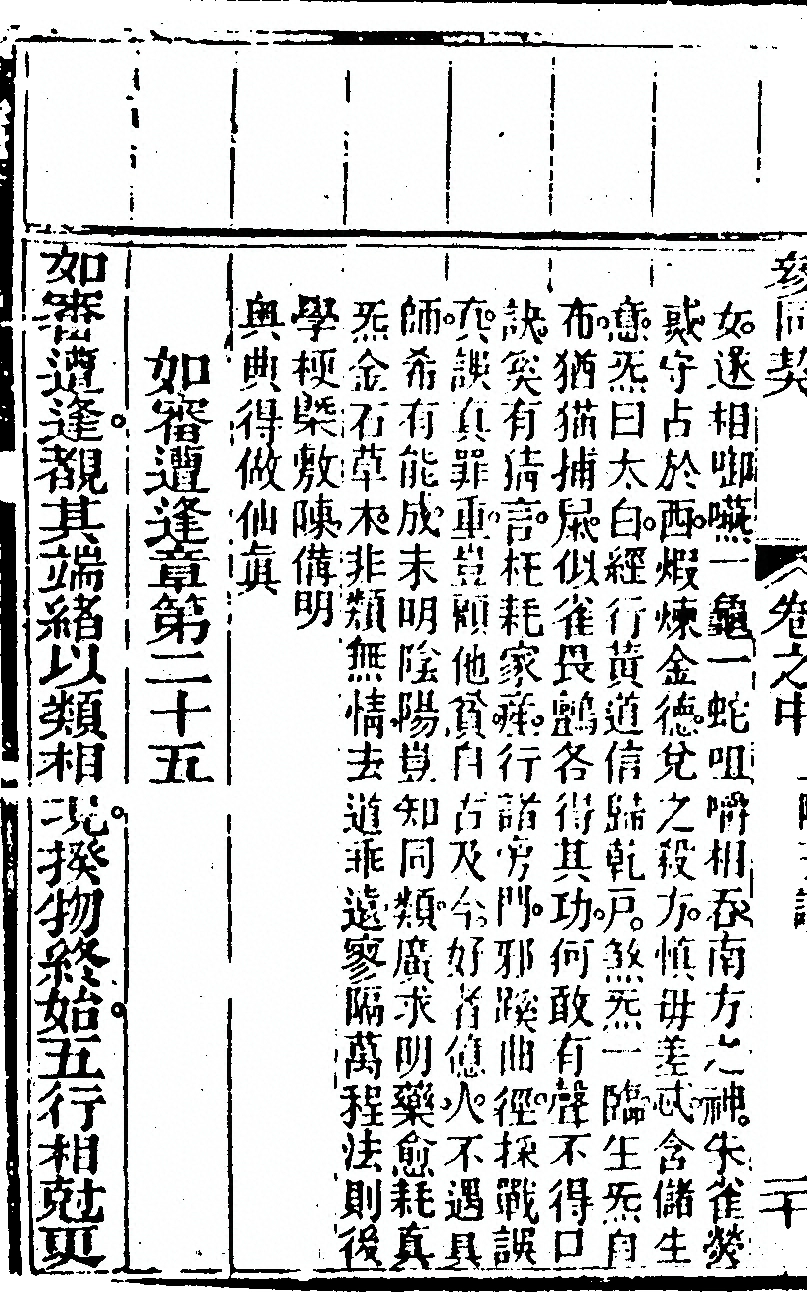 參同契 卷之中 二十
女遂相啣嚥一龜一蛇咀嚼相吞南方之神朱雀熒
惑守占於西煆煉金德兌之殺方慎毋差忒含儲生
意炁曰太白經行黃道信歸乾戸煞炁一臨生炁自
布猶猫捕鼠似雀畏鸇各得其功何敢有聲不得口
訣奚有猜言枉耗家行諸旁門邪蹊曲徑採戰誤
真罪重豈顧他貧自古及今好者億人不遇真
師希有能成未明陰陽豈知同類廣求明藥愈耗真
炁金石草木非類無情去道乖遠寥隔萬程法則後
學梗槩敷陳備明
與典得做仙眞
如審遭逢章第二十五
如審遭逢覩其端緒以類相況揆物終始五行相尅更